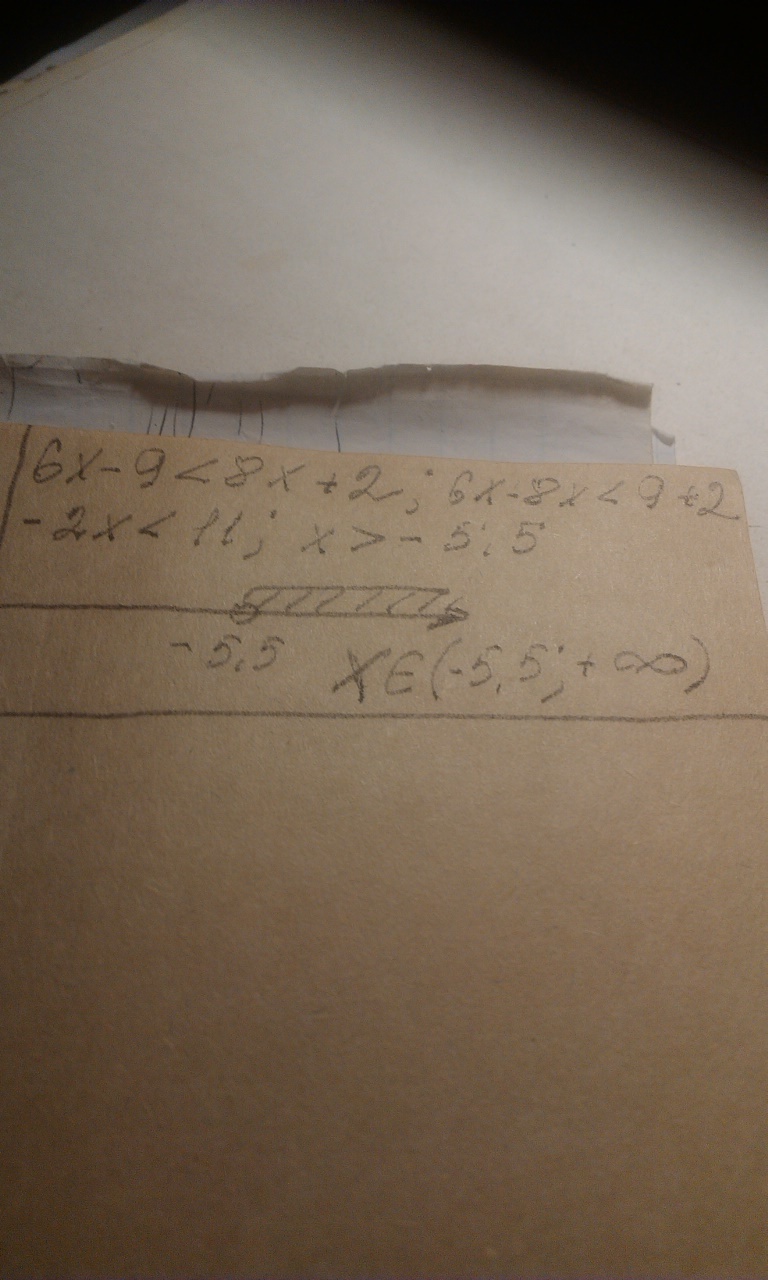 6x-9<8x+2; 6x-8x<9+2
-2x<11; x>-5,5
-5,5 x∈(-5,5;+∞)